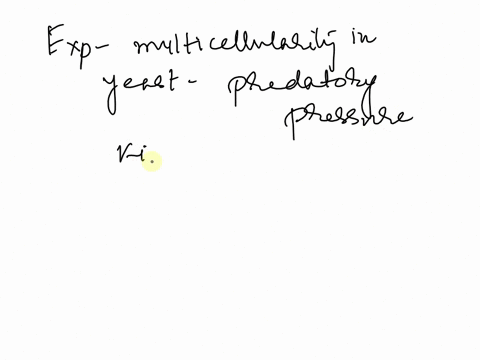 Exp- multicellularity in
yeast - predatory
pressure